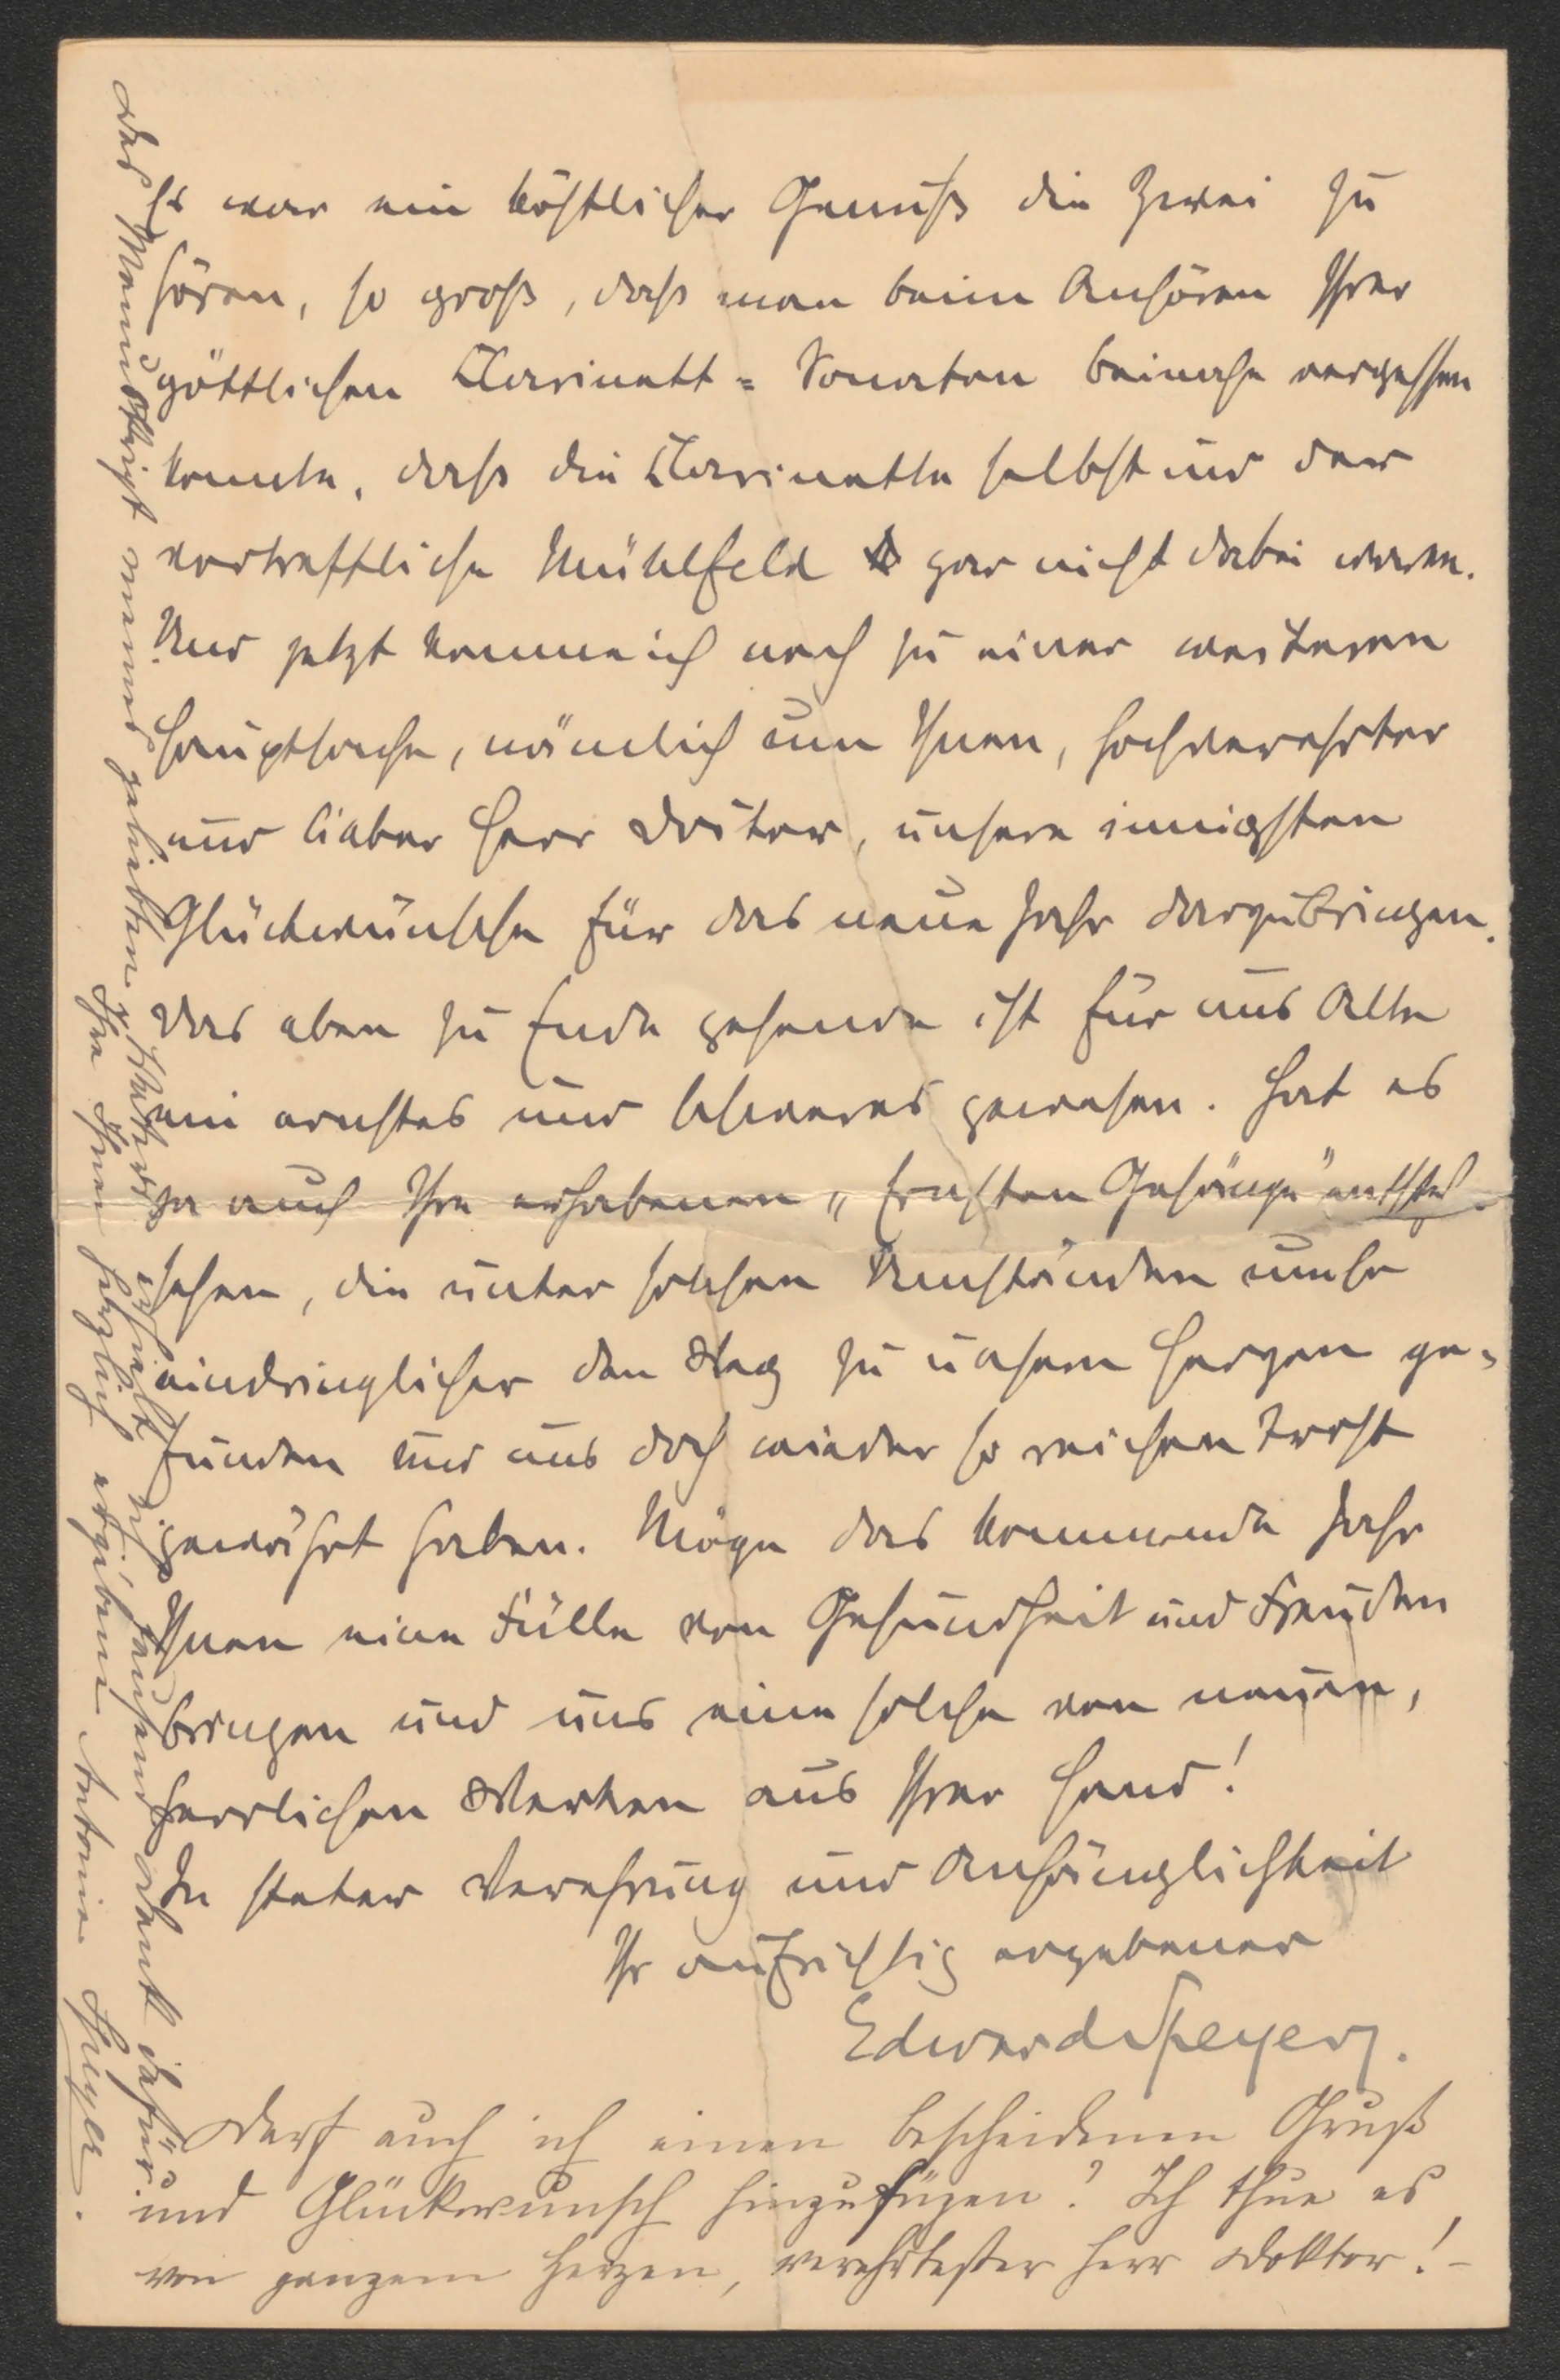 Es war ein köstlicher Genuß die Zwei zu
hören, so groß, daß man beim Anhören Ihrer
göttlichen Clarinett-Sonaten beinahe vergessen
konnte, daß die Clarinette selbst und der
vortreffliche Mühlfeld gar nicht dabei waren.
Und jetzt komme ich noch zu einer weiteren
Hauptsache, nämlich um Ihnen, hochverehrter
und lieber Herr Doktor, unsere innigsten
Glückwünsche für das neue Jahr darzubringen.
Das eben zu Ende gehende ist für uns Alle
ein ernstes und schweres gewesen. Hat es
ja auch Ihre erhabenen „Ernsten Gesänge" entste-
hehen, die unter solchen Umständen umso
eindringlicher den Weg zu unsern Herzen ge-
funden und uns doch wieder so reichen Trost
gewährt haben. Möge das kommende Jahr
Ihnen eine Fülle von Gesundheit und Freuden
bringen und uns eine solche von neuen,
herrlichen Werken aus Ihrer Hand!
In steter Verehrung und Anhänglichkeit
Ihr aufrichtig ergebener
Edward Speyer.
Darf auch ich einen bescheidenen Gruß
und Glückwunsch hinzufügen? Ich thue es
von ganzem Herzen, verehrtester Herr Doktor! –
Das Manuskript meines geliebten erhielt ich tausend Dank dafür.
Ihre Ihnen herzlich ergebene Antonie Speyer.